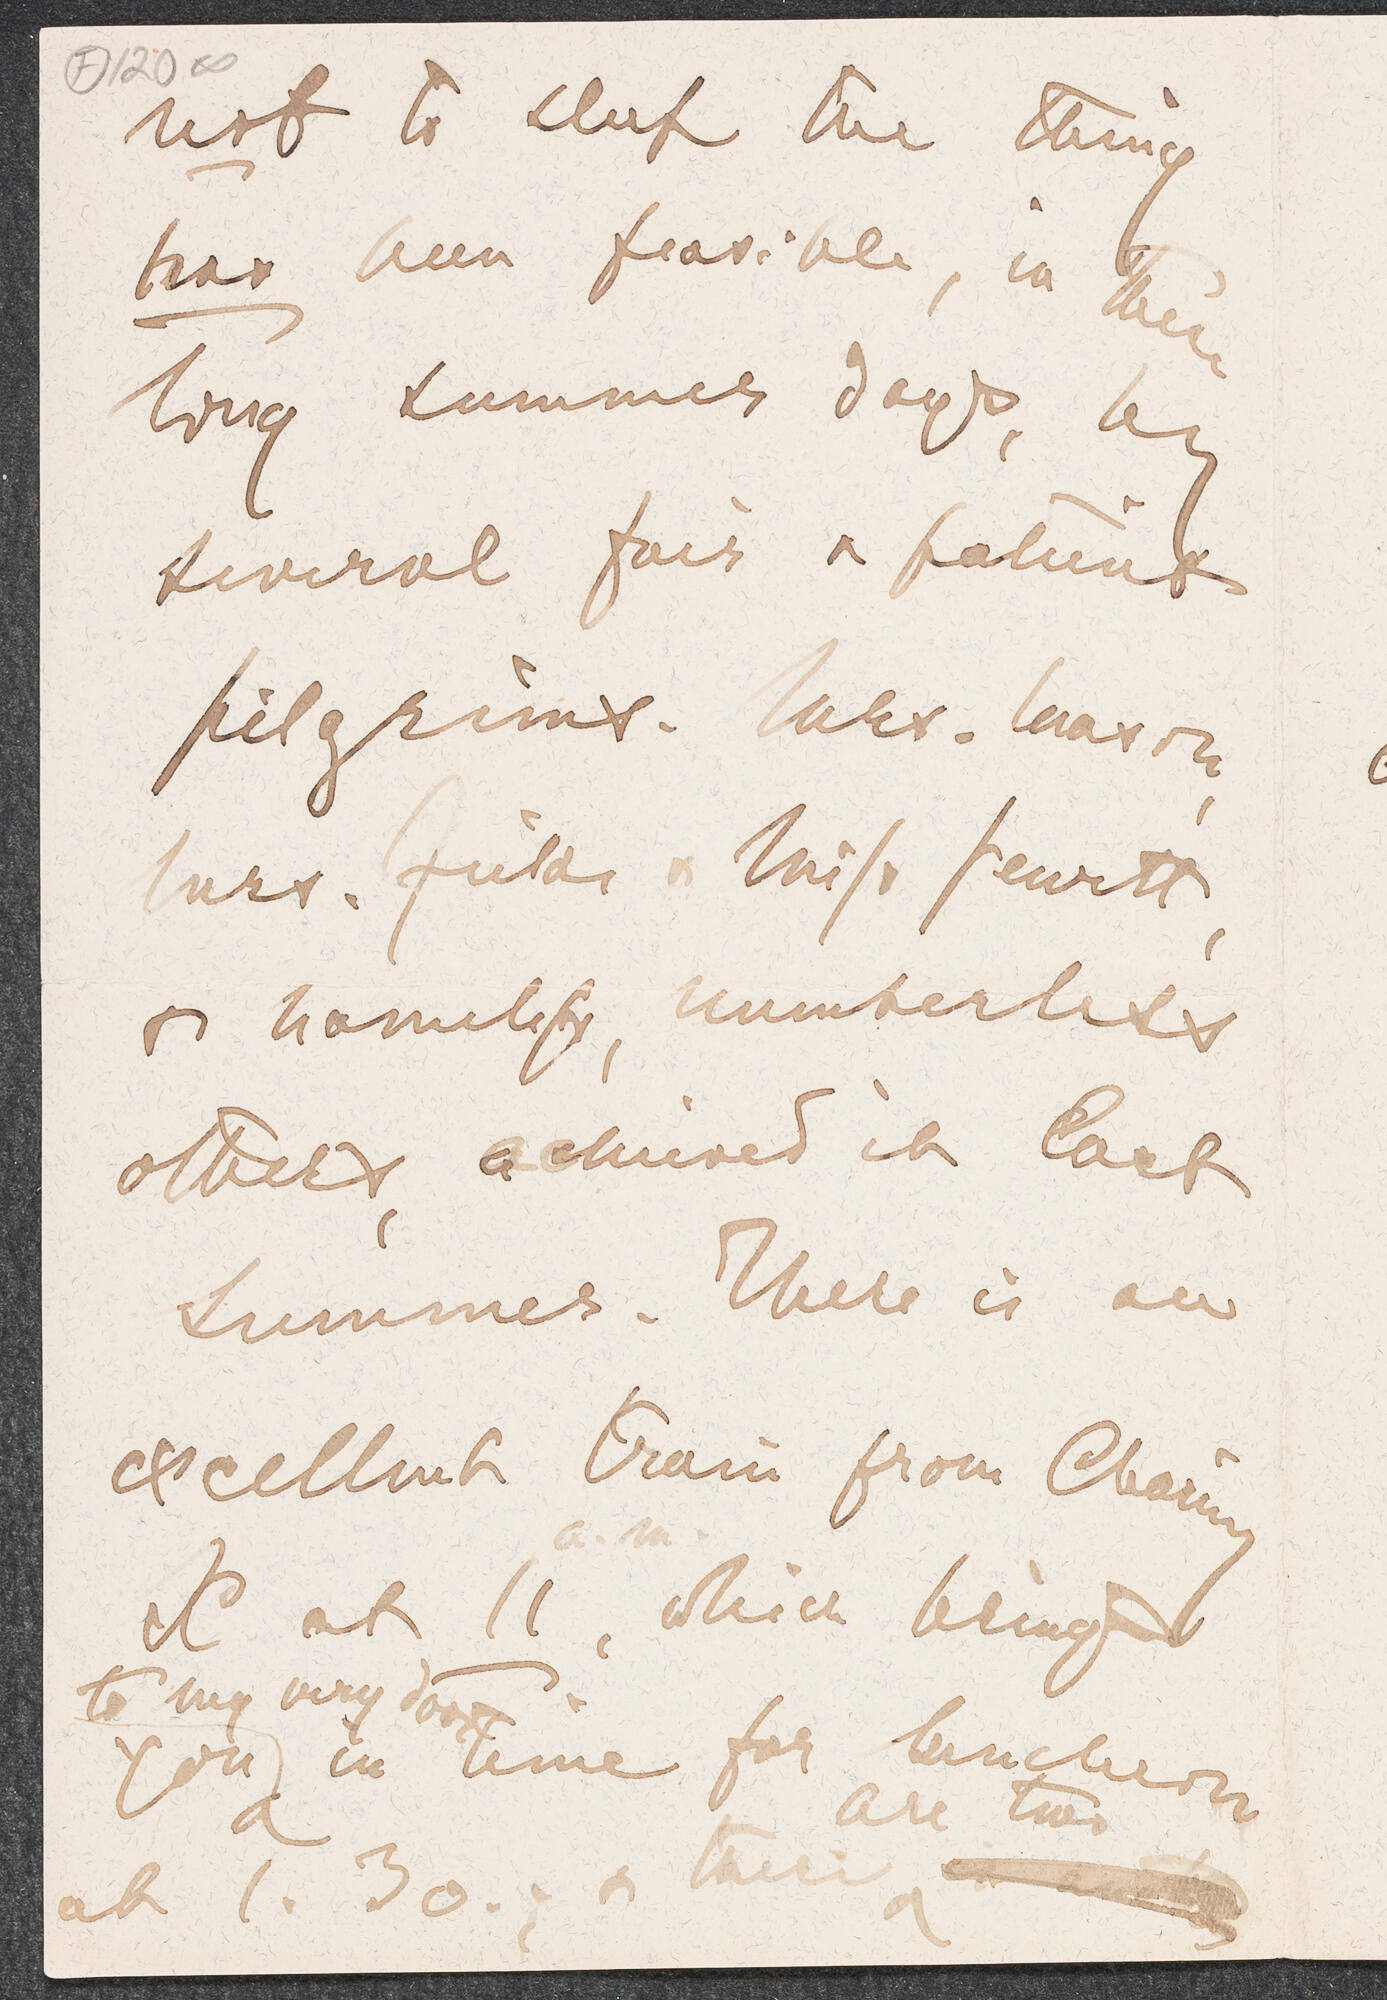 (F) 120
not to sleep the thing
has been feasible, in these
long summer days, by
several fair & patient
pilgrims. Mrs. Mason,
Mrs. Fields & Miss Jewett,
& namely, numberless
others, achieved it last
summer. There is an
excellent train from Charing
X at 11 a.m., which brings
you to my very door in time for luncheon
at 1.30.; & there are two